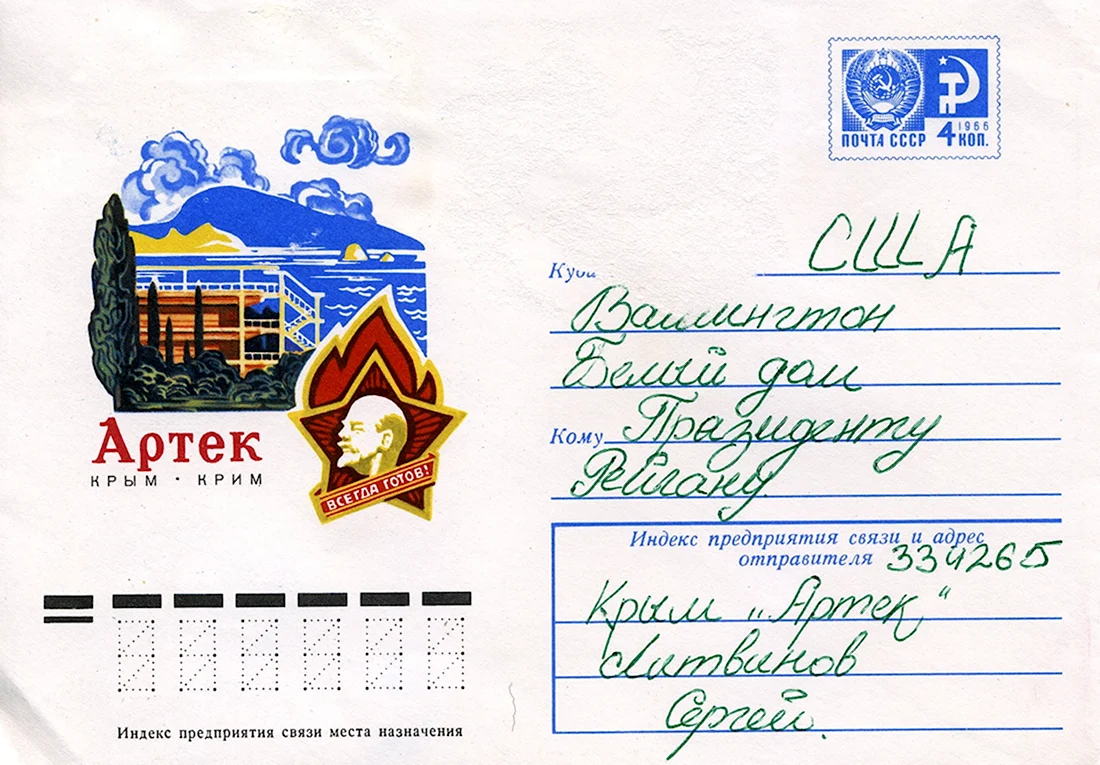 ПОЧТА СССР 4 1966 КОП.
Артек
КРЫМ · КРИМ
ВСЕГДА ГОТОВ!
Куда США
Вашингтон
Белый дом
Кому Празиденту
Рейгану
Индекс предприятия связи и адрес
отправителя 334265
Крым „Артек“
Литвинов
Сергей.
Индекс предприятия связи места назначения